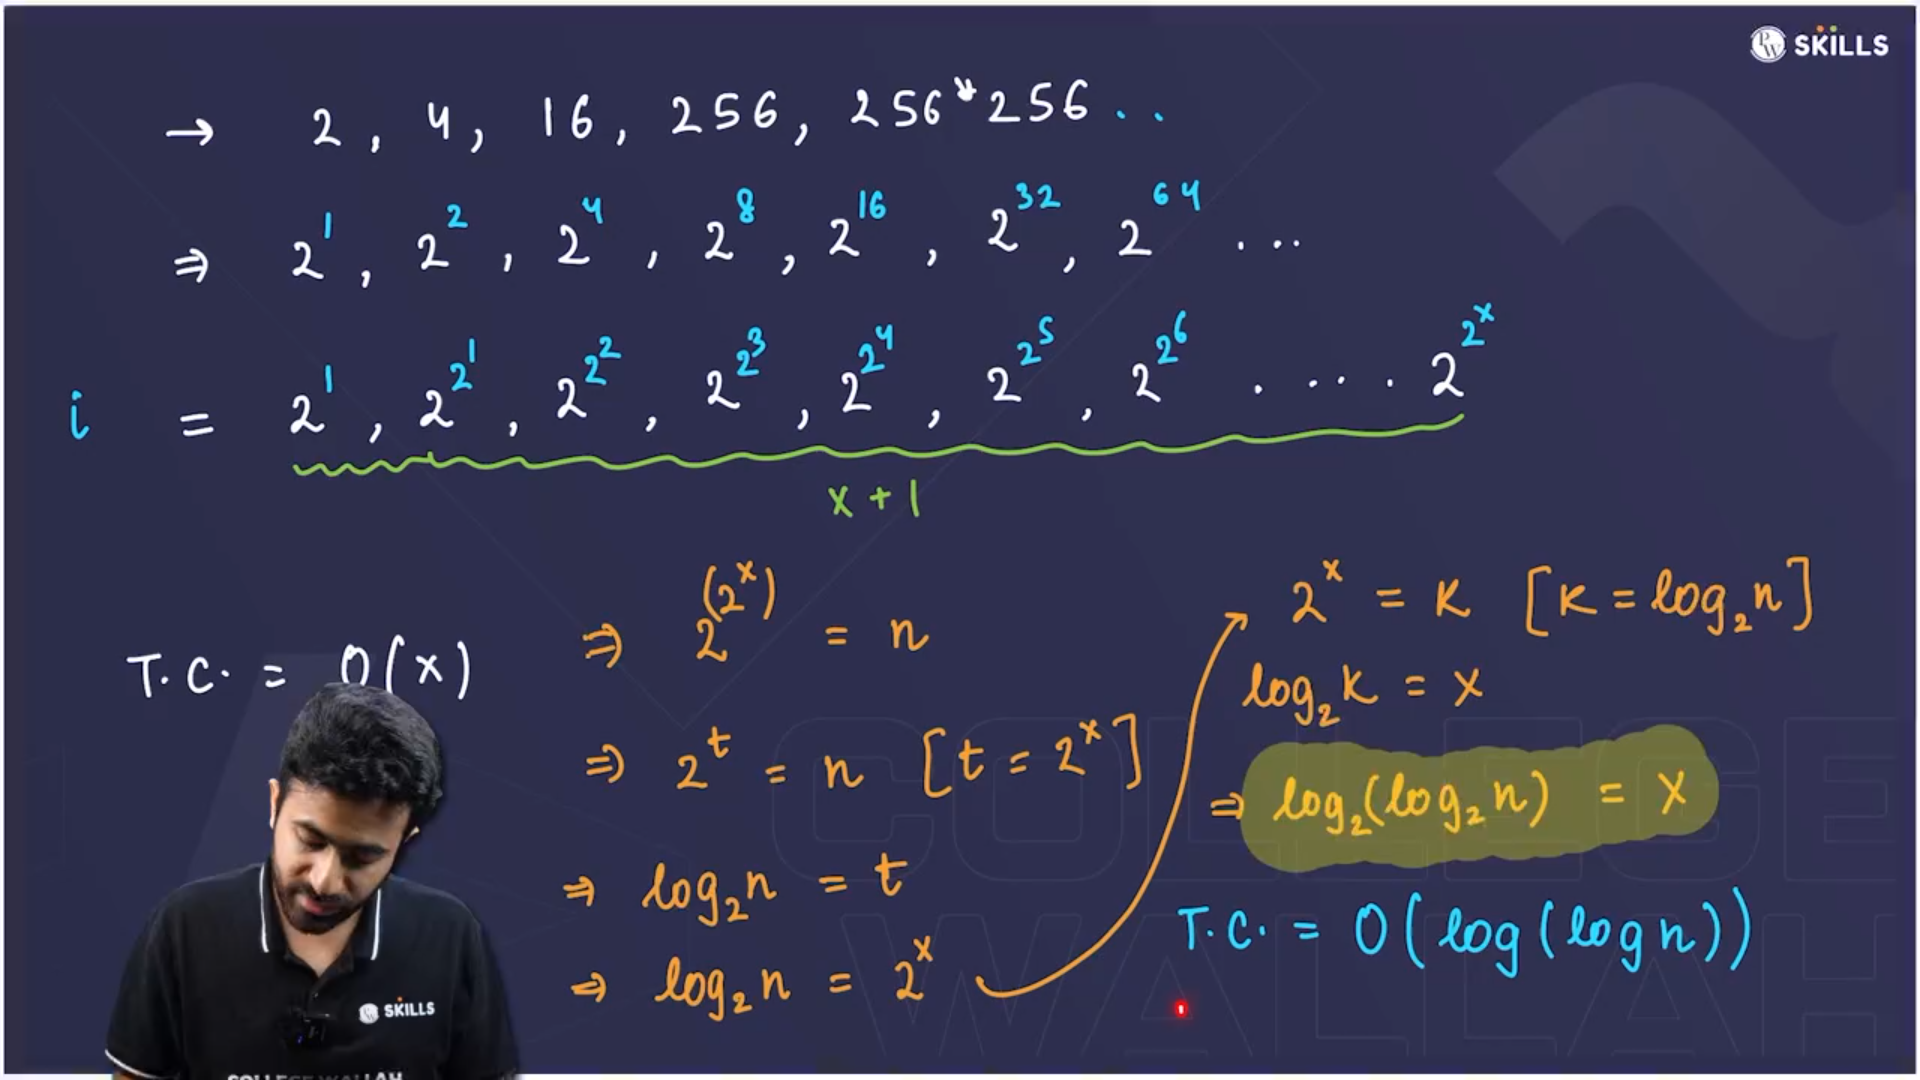 PW SKILLS
→ 2, 4, 16, 256, 256*256 ..
⇒ 2^1, 2^2, 2^4, 2^8, 2^16, 2^32, 2^64 ...
i = 2^1, 2^2^1, 2^2^2, 2^2^3, 2^2^4, 2^2^5, 2^2^6 .... 2^2^x
x + 1
T.C. = O(x)
⇒ 2^(2^x) = n
⇒ 2^t = n [t = 2^x]
⇒ log₂n = t
⇒ log₂n = 2^x
2^x = K [K = log₂n]
log₂K = x
⇒ log₂(log₂n) = x
T.C. = O(log(log n))
PW SKILLS
COLLEGE WALLAH
COLLEGE
WALLAH